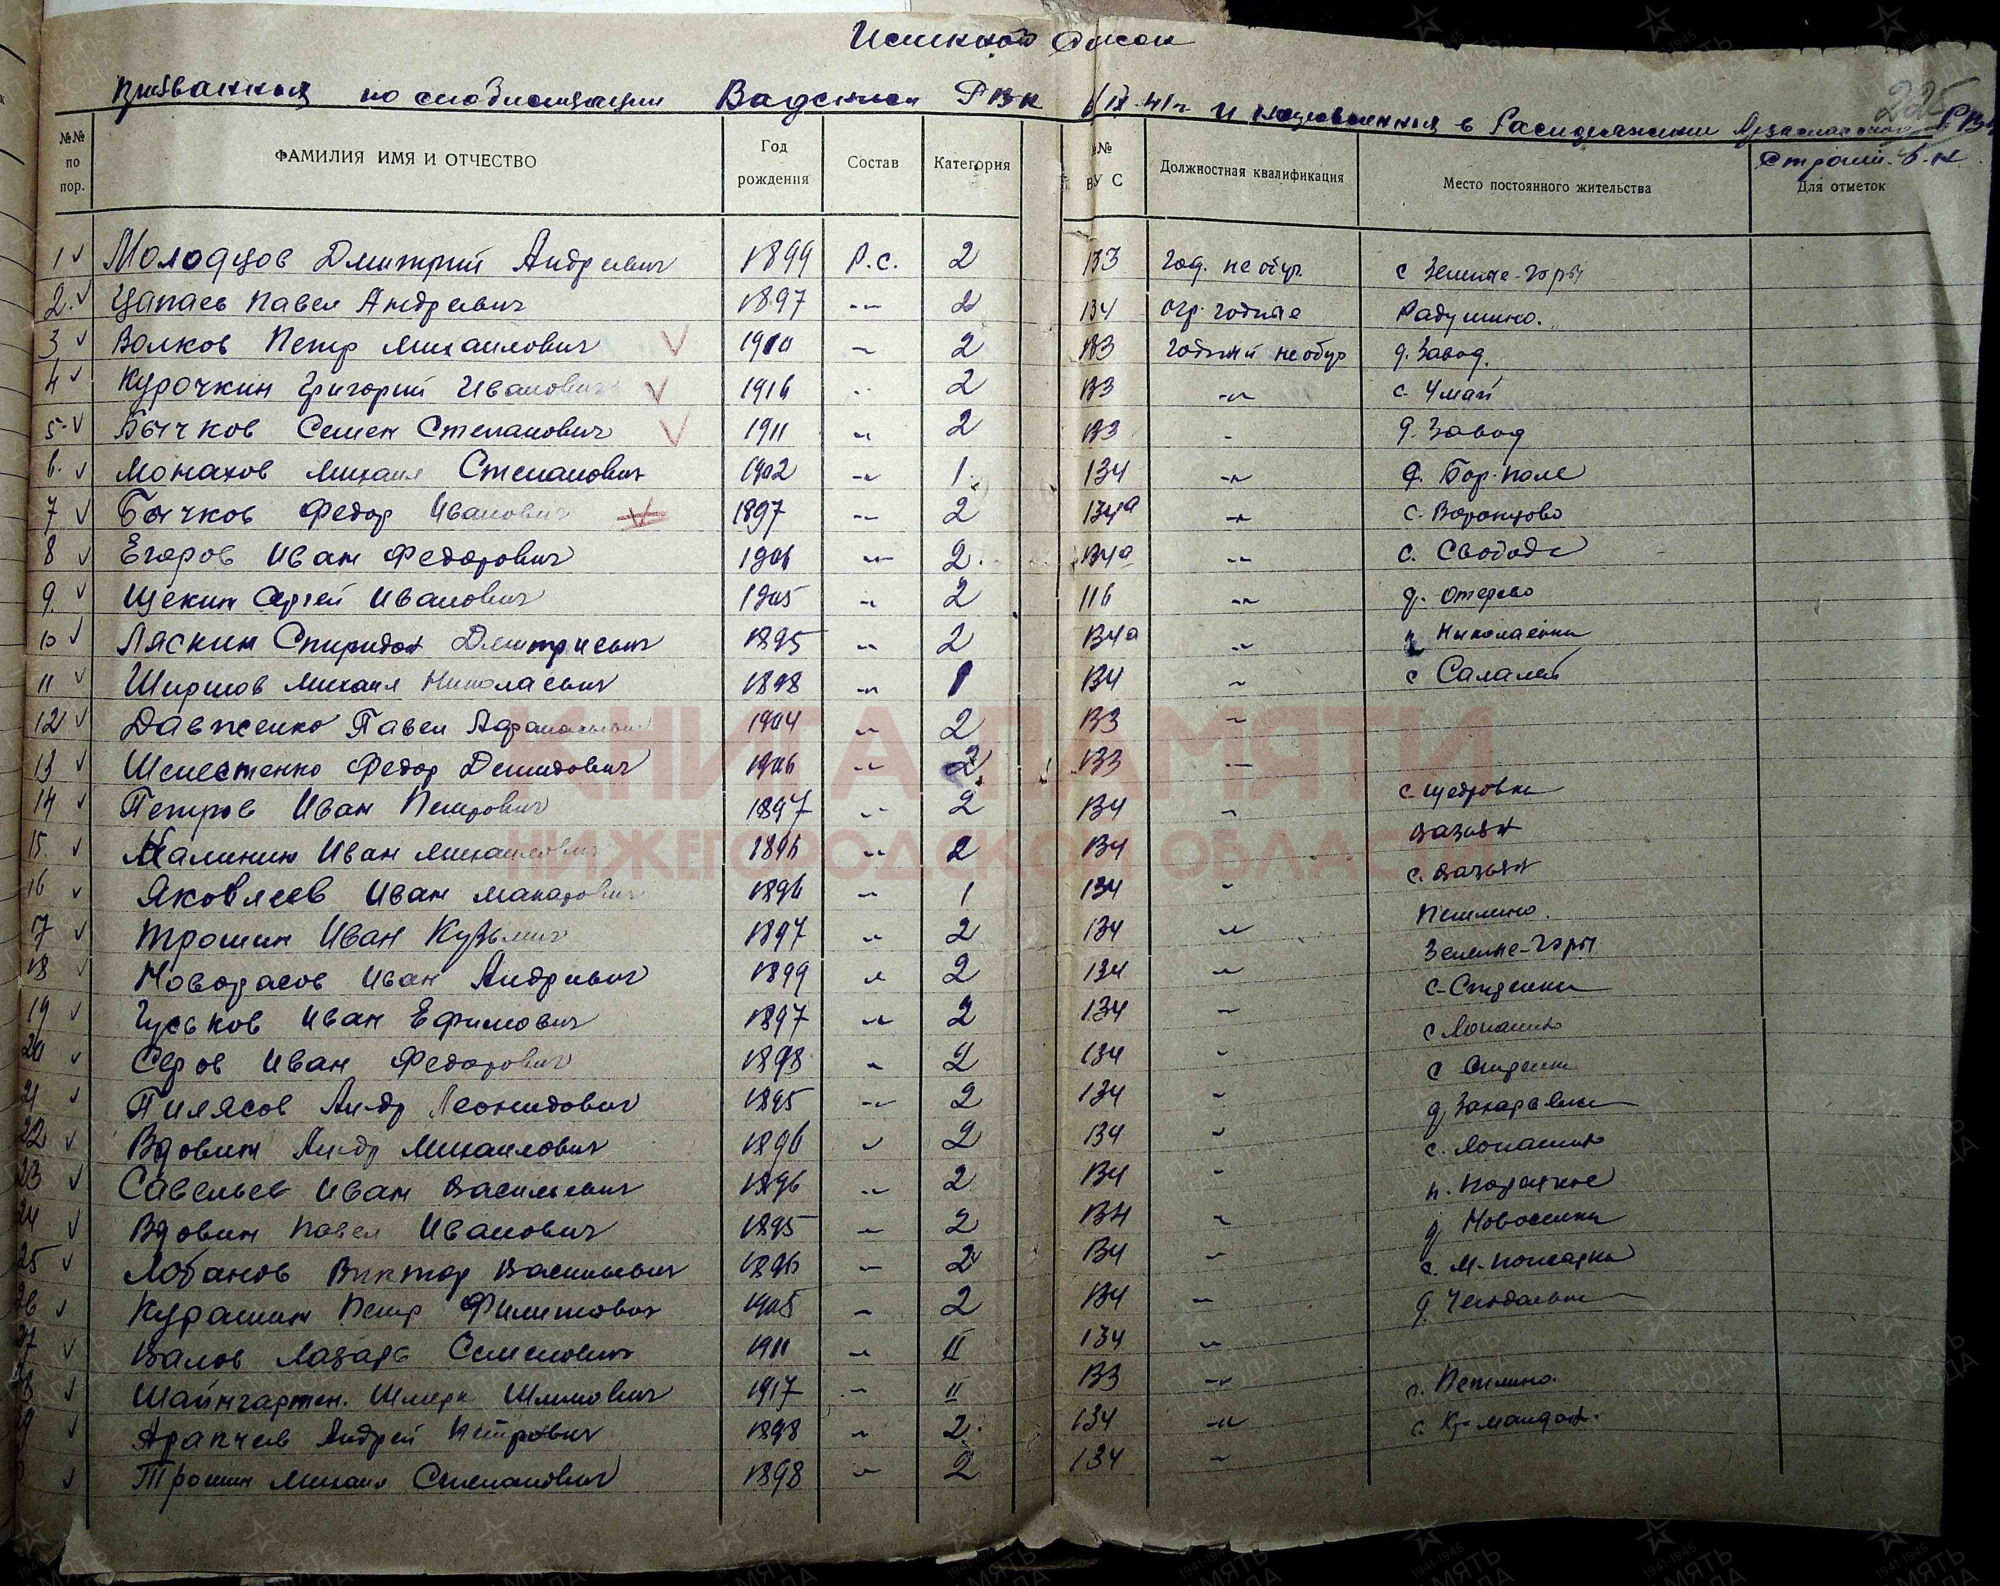 Именной список
призванных по мобилизации Вадским РВК 6/IX-41г. и направленных в распоряжение Арзамасского РВК
225
Строит. б-н
№№ по пор. ФАМИЛИЯ ИМЯ И ОТЧЕСТВО Год рождения Состав Категория №№ ВУС Должностная квалификация Место постоянного жительства Для отметок
1 Молодцов Дмитрий Андреевич 1899 Р.С. 2 133 год. не обуч. с Зеленые-горы
2. Цапаев Павел Андреевич 1897 -"- 2 134 огр. годные Радушино.
3 Волков Петр Михаилович 1910 -"- 2 133 годный не обуч д. Завод.
4 Курочкин Григорий Иванович 1916 -"- 2 133 -"- с. Умай
5. Бычков Семен Степанович 1911 -"- 2 133 -"- д. Завод
6. Монахов Михаил Степанович 1902 -"- 1. 134 -"- д. Бор-поле
7 Бычков Федор Иванович 1897 -"- 2 134а -"- с. Воронцово
8 Егоров Иван Федорович 1906 -"- 2. 134а -"- с. Свобода
9 Щекин Сергей Иванович 1905 -"- 2 116 -"- д.
10 Ляскин Спиридон Дмитриевич 1895 -"- 2 134а -"- Николаевка
11 Ширшов Михаил Николаевич 1898 -"- 1 134 -"- с Салалей
12 Давженко Павел Афанасьевич 1904 -"- 2 133 -"-
13 Шелестенко Федор Демидович 1906 -"- 2 133 -"-
14 Петров Иван Петрович 1897 -"- 2 134 -"- с-Щедровка
15. Калинин Иван Михаилович 1896 -"- 2 134 Вазьян
16 Яковлеев Иван Макарович 1896 -"- 1 134 -"- с. Вазьян
17 Трошин Иван Кузьмич 1897 -"- 2 134 -"- Петлино.
18 Новорасов Иван Андреевич 1899 -"- 2 134 -"- Зеленые-горы
19 Гуськов Иван Ефимович 1897 -"- 2 134 -"- с-Студенки
20 Серов Иван Федорович 1898 -"- 2 134 -"- с Лопатино
21 Пилясов Андр Леонидович 1895 -"- 2 134 -"- с Студенки
22 Вдовин Андр Михаилович 1896 -"- 2 134 -"- д Захарьевка
23 Савельев Иван Васильевич 1896 -"- 2 134 -"- с. Лопатино
24 Вдовин Павел Иванович 1895 -"- 2 134 -"- п.
25 Лобанов Виктор Васильевич 1896 -"- 2 134 -"- д Новоселки
26 Курашин Петр Филипович 1905 -"- 2 134 -"- с. М-пожарки
27 Валов Лазарь Семенович 1911 -"- II 134 -"- д.
28 Шайнгартен. Шлема Шлимович 1917 -"- II 133 -"- с. Петлино.
29 Арапчев Андрей Петрович 1898 -"- 2. 134 -"- с. Кр-майдан.
Трошин Михаил Степанович 1898 -"- 2 134 -"-
КНИГА ПАМЯТИ
НИЖЕГОРОДСКОЙ ОБЛАСТИ